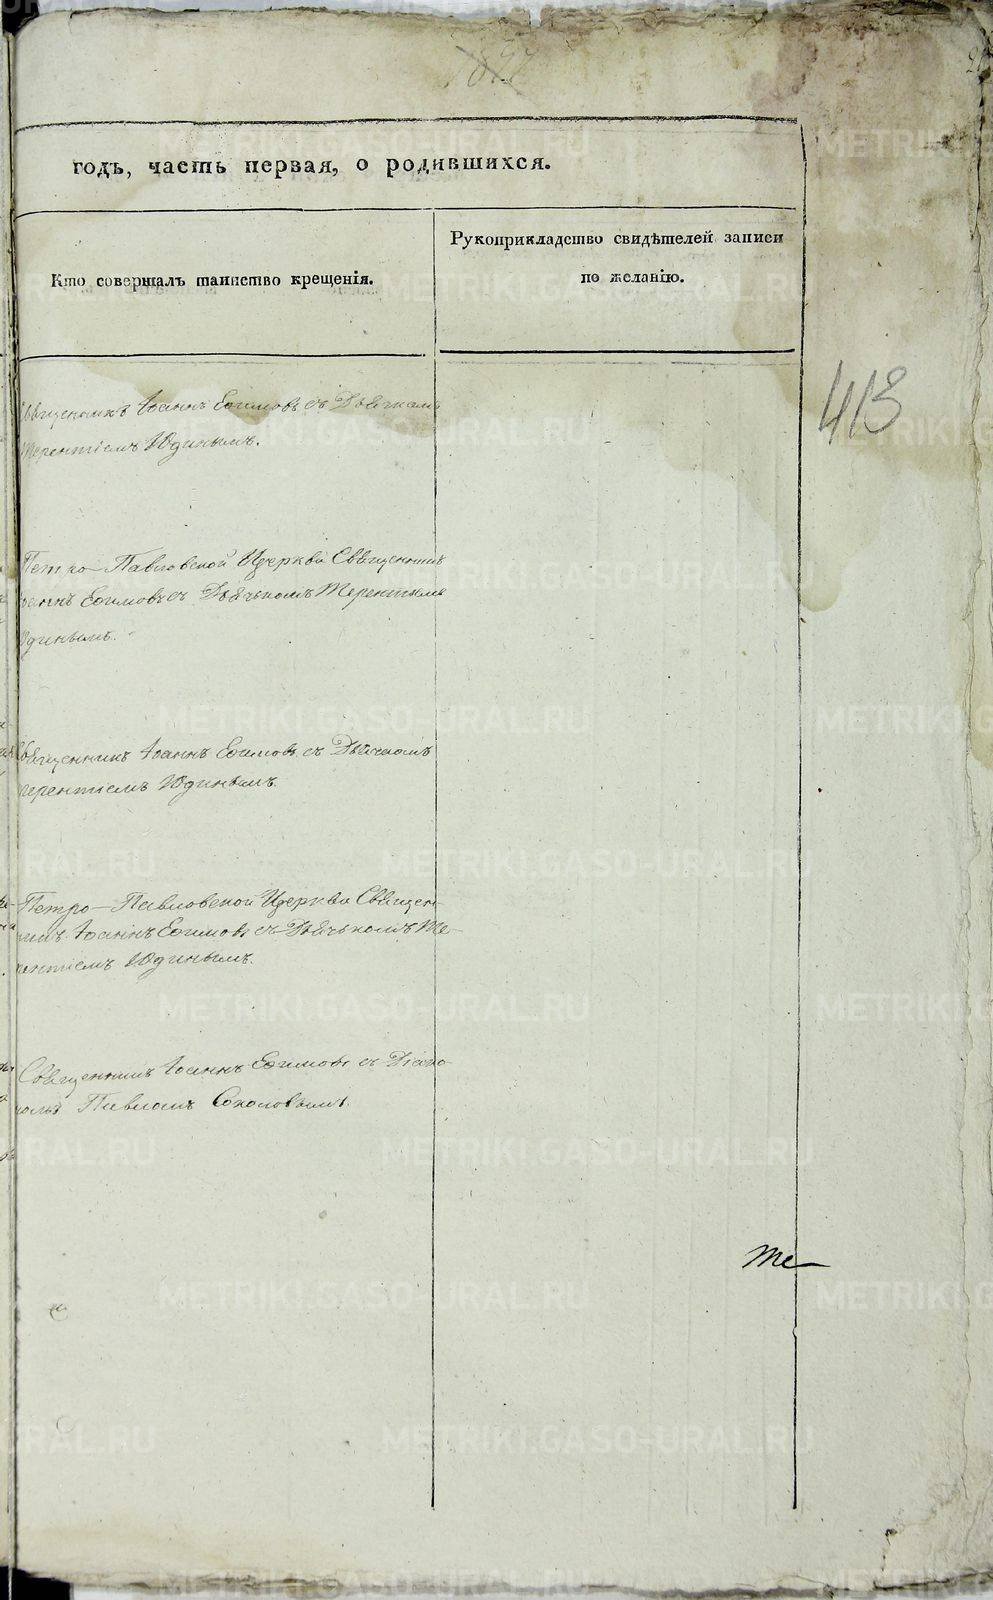 годъ, часть первая, о родившихся.
Кто совершалъ таинство крещенія.
Рукоприкладство свидѣтелей записи
по желанію.
413
Священникъ Іоаннъ Ефимовъ съ Дьячкомъ
Терентіемъ Юдинымъ.
Петро-Павловской Церкви Священникъ
Іоаннъ Ефимовъ съ Дьячькомъ Терентіемъ
Юдинымъ.
Священникъ Іоаннъ Ефимовъ съ Дьячкомъ
Терентіемъ Юдинымъ.
Петро-Павловской Церкви Священ-
никъ Іоаннъ Ефимовъ съ Дьячькомъ Те-
рентіемъ Юдинымъ.
Священникъ Іоаннъ Ефимовъ съ Діако-
номъ Павломъ Соколовымъ.
те
METRIKI.GASO-URAL.RU